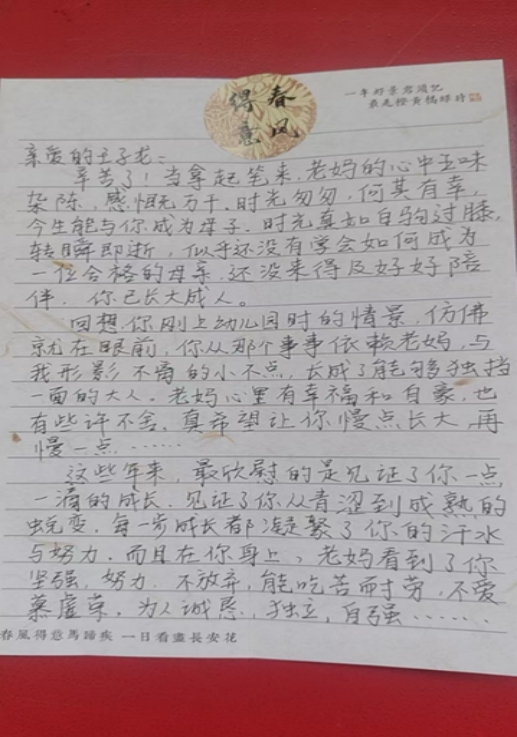 春風
得意
一年好景君須記
最是橙黃橘綠時
亲爱的王子龙:
辛苦了!当拿起笔来,老妈的心中五味
杂陈,感慨万千.时光匆匆,何其有幸,
今生能与你成为母子.时光真如白驹过隙,
转瞬即逝,似乎还没有学会如何成为
一位合格的母亲,还没来得及好好陪
伴.你已长大成人。
回想你刚上幼儿园时的情景.仿佛
就在眼前,你从那个事事依赖老妈,与
我形影不离的小不点,长成了能够独挡
一面的大人.老妈心里有幸福和自豪,也
有些许不舍.真希望让你慢点长大,再
慢一点……
这些年来,最欣慰的是见证了你一点
一滴的成长.见证了你从青涩到成熟的
蜕变.每一步成长都凝聚了你的汗水
与努力.而且在你身上,老妈看到了你
坚强,努力.不放弃,能吃苦而耐劳,不爱
慕虚荣.为人诚恳,独立,自强……
春風得意馬蹄疾 一日看盡長安花